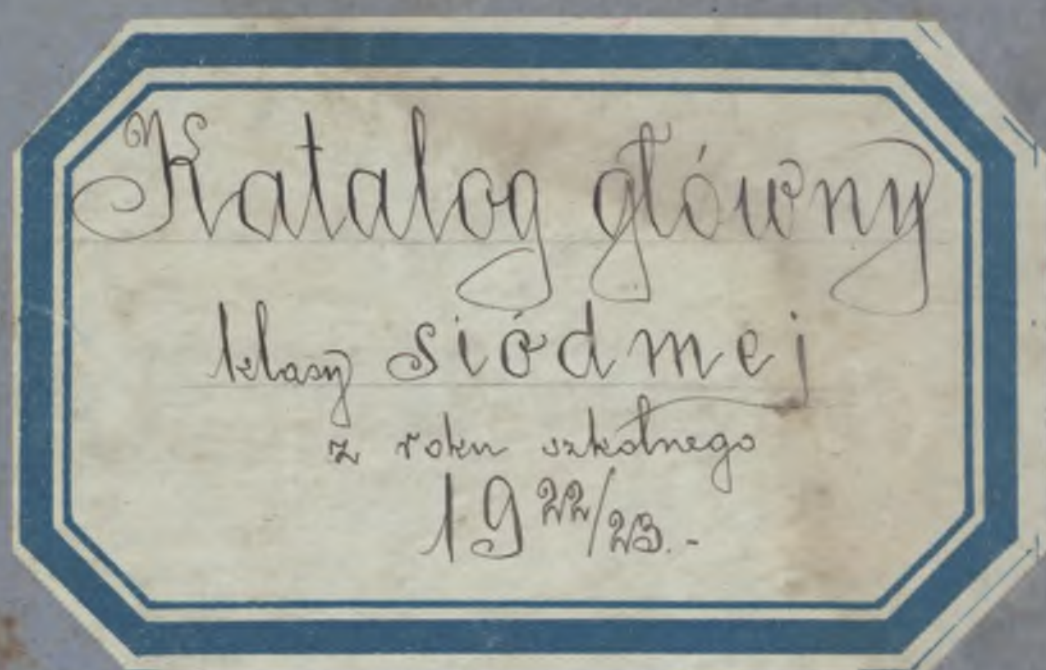 Katalog główny
klasy siódmej
z roku szkolnego
19 22/23.-